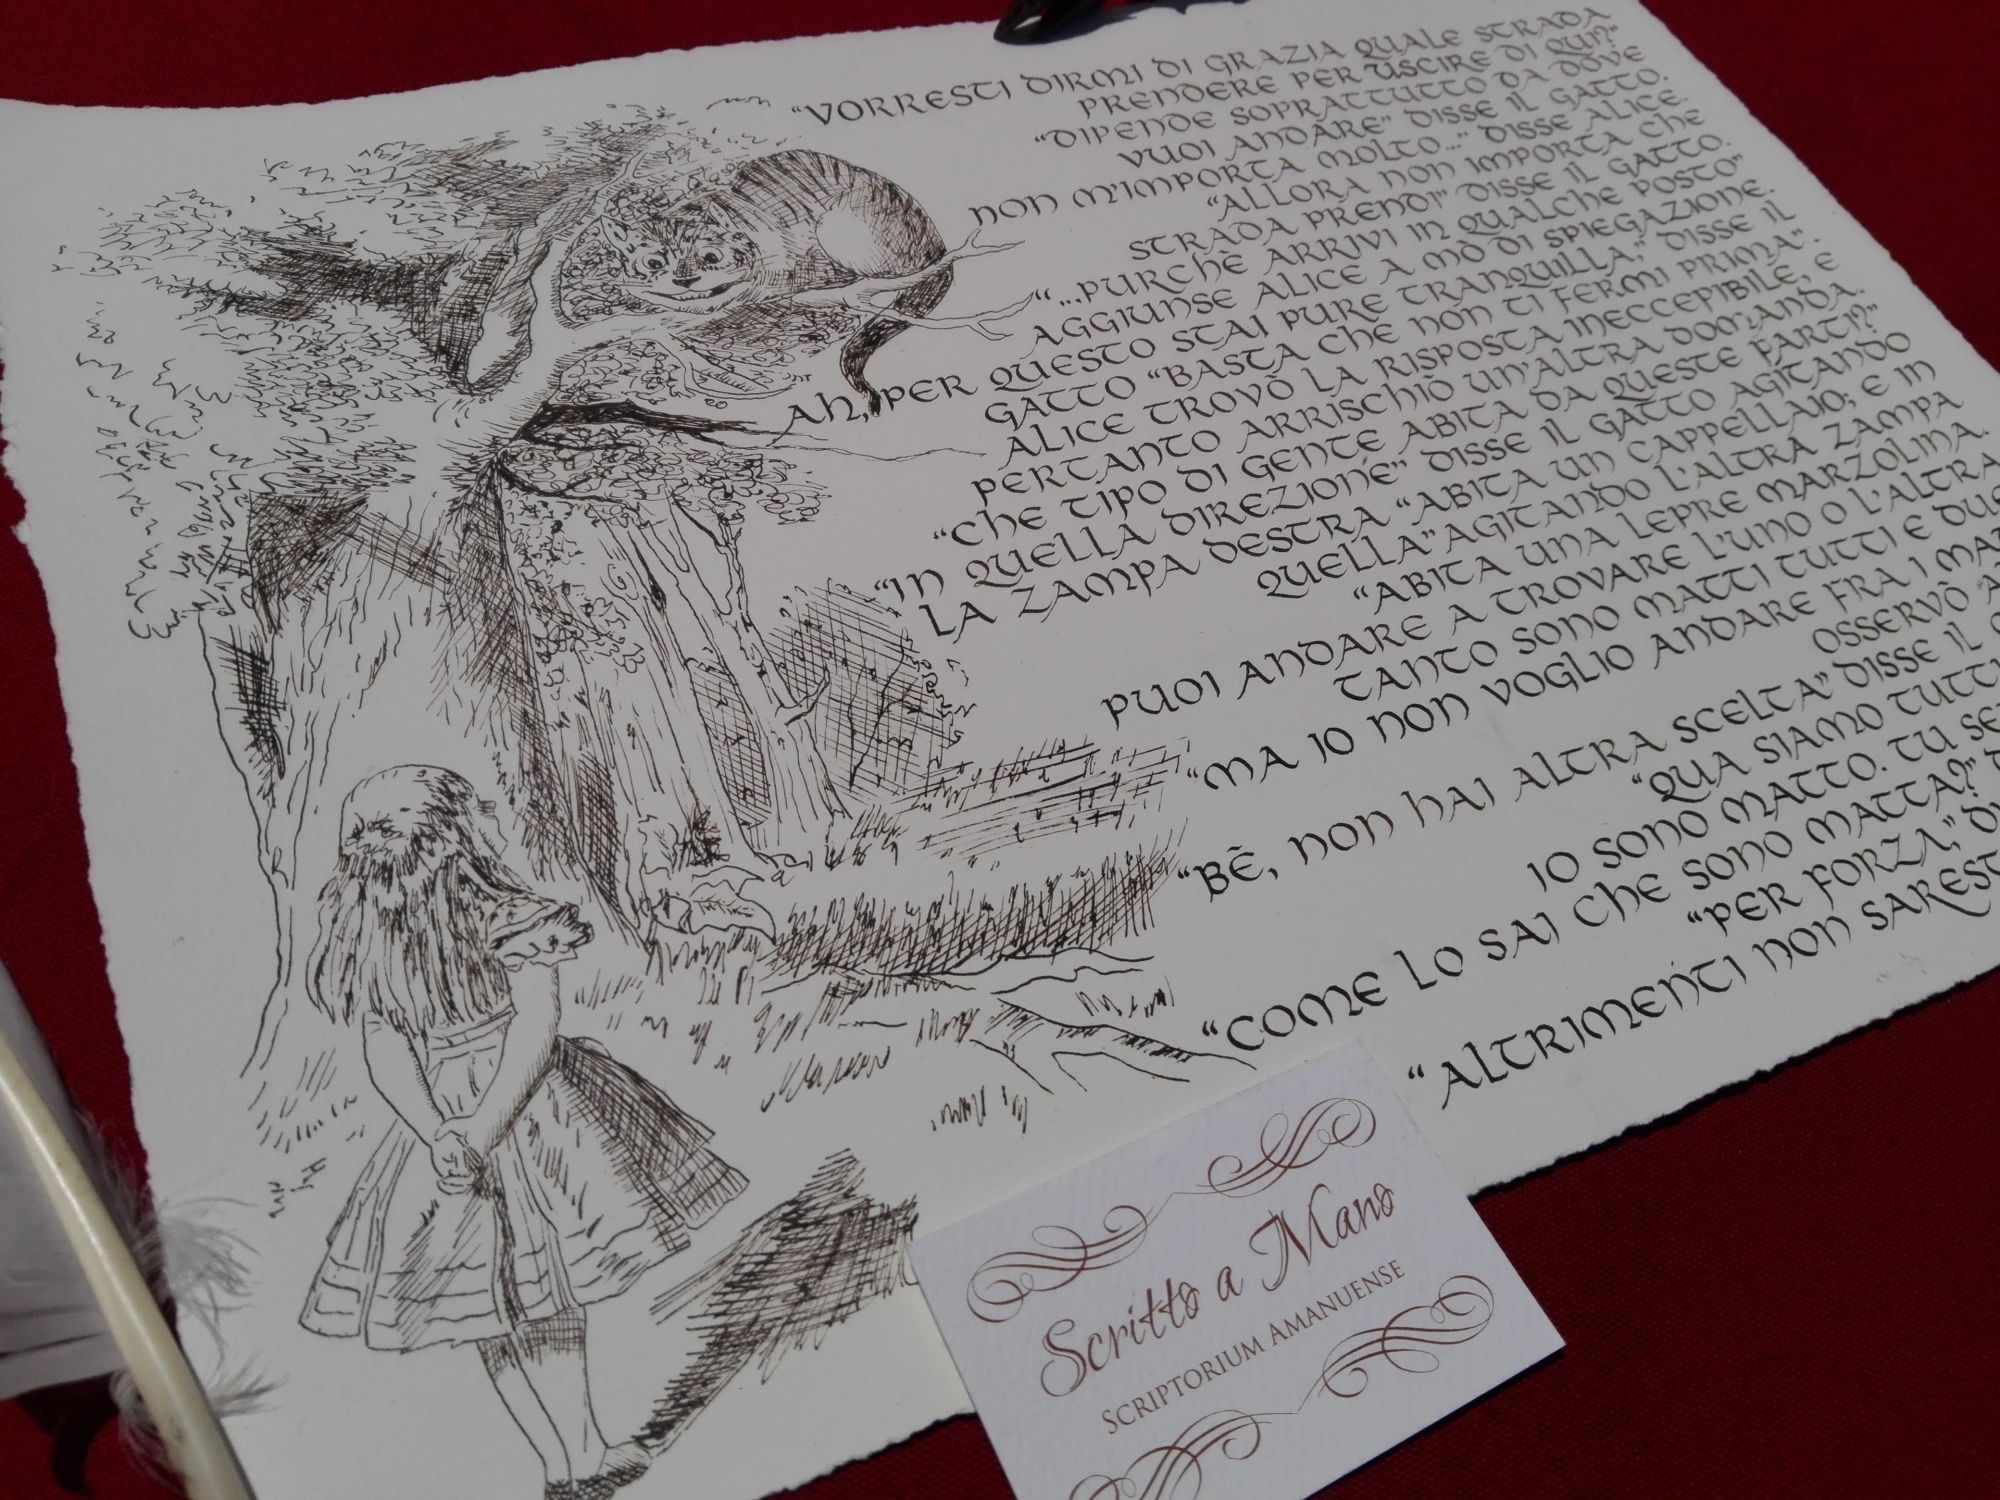 “VORRESTI DIRMI DI GRAZIA QUALE STRADA
PRENDERE PER USCIRE DI QUI?”
“DIPENDE SOPRATTUTTO DA DOVE
VUOI ANDARE” DISSE IL GATTO.
NON M'IMPORTA MOLTO...” DISSE ALICE.
“ALLORA NON IMPORTA CHE
STRADA PRENDI” DISSE IL GATTO.
“...PURCHÈ ARRIVI IN QUALCHE POSTO”
AGGIUNSE ALICE A MÒ DI SPIEGAZIONE.
AH, PER QUESTO STAI PURE TRANQUILLA.” DISSE IL
GATTO “BASTA CHE NON TI FERMI PRIMA”.
ALICE TROVÒ LA RISPOSTA INECCEPIBILE, E
PERTANTO ARRISCHIÒ UN'ALTRA DOMANDA.
“CHE TIPO DI GENTE ABITA DA QUESTE PARTI?”
“IN QUELLA DIREZIONE” DISSE IL GATTO AGITANDO
LA ZAMPA DESTRA “ABITA UN CAPPELLAIO; E IN
QUELLA” AGITANDO L'ALTRA ZAMPA
“ABITA UNA LEPRE MARZOLINA.
PUOI ANDARE A TROVARE L'UNO O L'ALTRA
TANTO SONO MATTI TUTTI E DUE
“MA IO NON VOGLIO ANDARE FRA I
OSSERVÒ
“BÈ, NON HAI ALTRA SCELTA” DISSE IL
“QUA SIAMO TUTTI
IO SONO MATTO. TU
“COME LO SAI CHE SONO MATTA?”
“PER FORZA,”
“ALTRIMENTI NON
Scritto a Mano
SCRIPTORIUM AMANUENSE